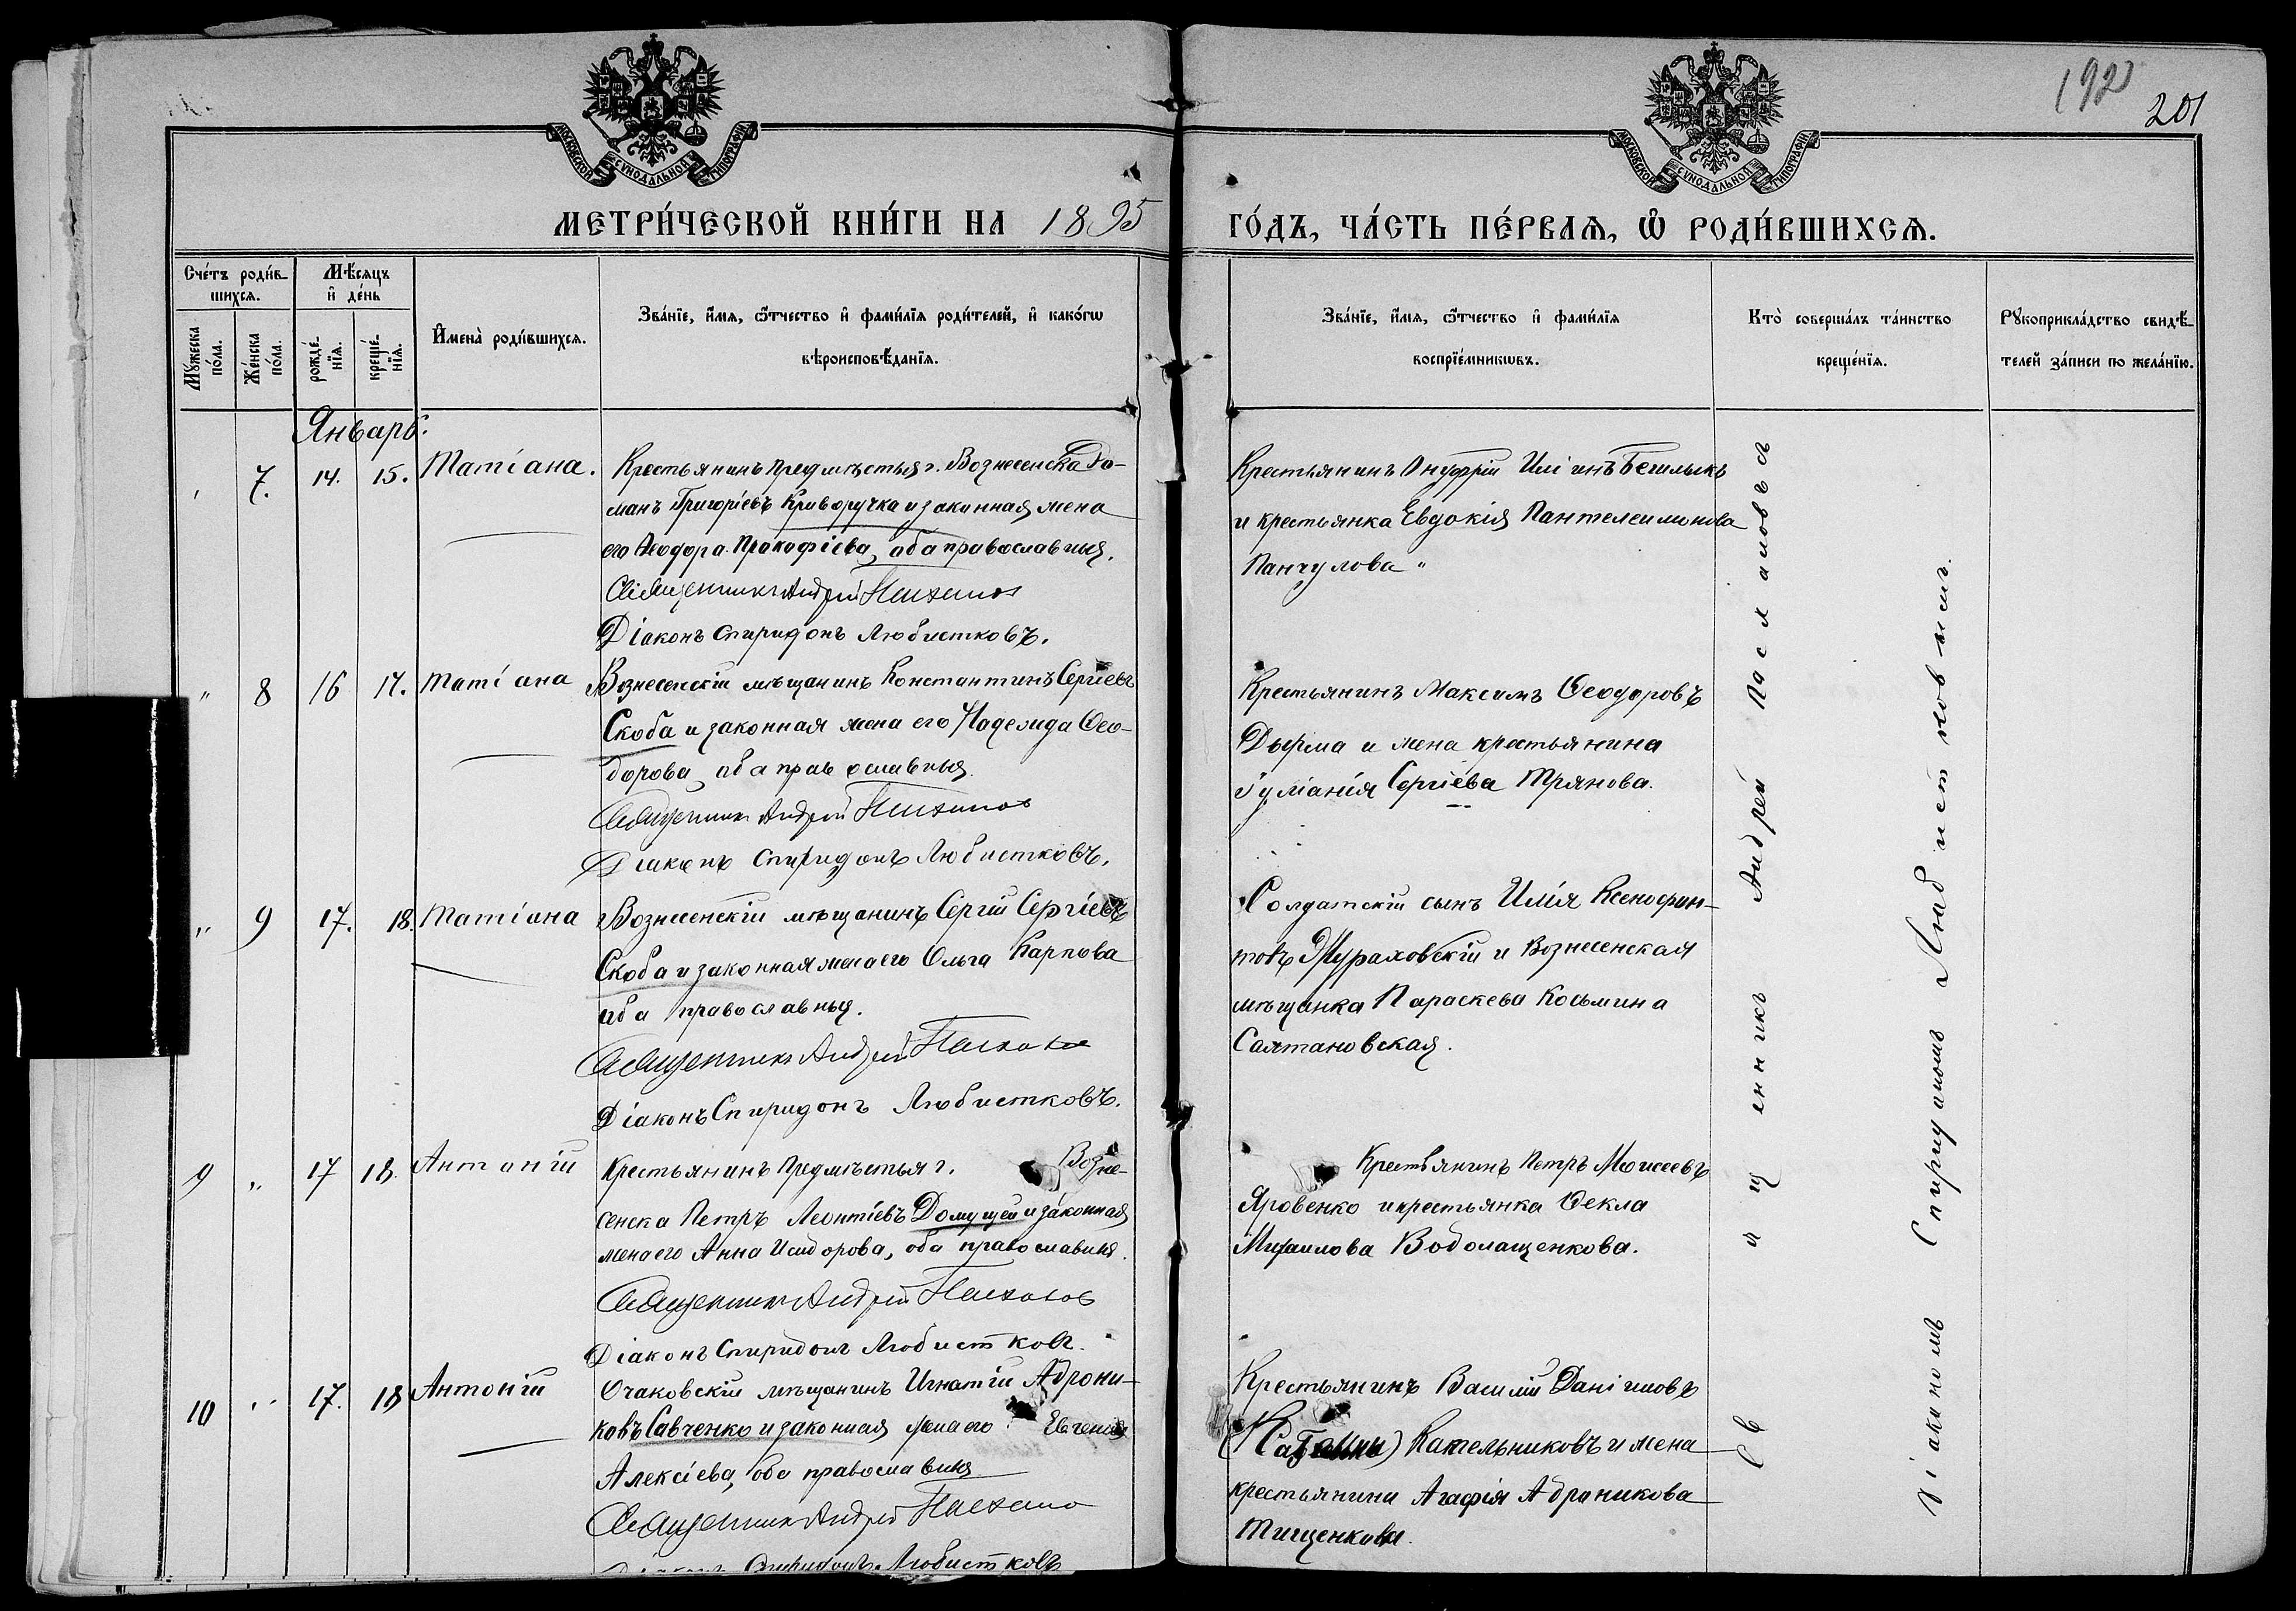 192
201
МОСКОВСКОЙ СѴНОДАЛЬНОЙ ТИПОГРАФІИ
МОСКОВСКОЙ СѴНОДАЛЬНОЙ ТИПОГРАФІИ
МЕТРИ́ЧЕСКОЙ КНИ́ГИ НА 1895 ГО́ДЪ, ЧА́СТЬ ПЕ́РВАѦ, Ѽ РОДИ́ВШИХСѦ.
Сче́тъ роди́в-
шихсѧ.
Мꙋ́жеска по́ла.
Же́нска по́ла.
Мѣ́сѧцъ
и҆ де́нь
рожде́-
нїѧ.
креще́-
нїѧ.
И҆мена̀ роди́вшихсѧ.
Зва́нїе, и҆́мѧ, ѻ҆́тчество и҆ фами́лїѧ роди́телей, и҆ како́гѡ
вѣроисповѣ́данїѧ.
Зва́нїе, и҆́мѧ, ѻ҆́тчество и҆ фами́лїѧ
воспрїе́мникѡвъ.
Кто̀ соверша́лъ та́инство
креще́нїѧ.
Рꙋкоприкла́дство свидѣ́-
телей за́писи по жела́нїю.
Январь.
7. 14. 15. Татіана.
Крестьянинъ предмѣстья г. Вознесенска Ро-
манъ Григоріевъ Криворучка и законная жена
его Ѳеодора Прокофіева, оба православныя.
Священникъ Андрей
Діаконъ Спиридонъ Любистковъ.
Крестьянинъ Онуфрій Иліинъ
и крестьянка Евдокія Пантелеимонова
Панчулова
" 8 16 17. Татіана
Вознесенскій мѣщанинъ Константинъ Сергіевъ
Скоба и законная жена его Надежда Ѳео-
дорова, оба православныя.
Священникъ Андрей
Діаконъ Спиридонъ Любистковъ.
Крестьянинъ Максимъ Ѳеодоровъ
и жена крестьянина
Іуліанія Сергіева
" 9 17. 18. Татіана
Вознесенскій мѣщанинъ Сергій Сергіевъ
Скоба и законная жена его Ольга Карпова
оба православныя.
Священникъ Андрей
Діаконъ Спиридонъ Любистковъ.
Солдатскій сынъ Илія Ксенофон-
товъ Мураховскій и Вознесенская
мѣщанка Параскева Косьмина
Салтановская.
9 " 17 18. Антоній
Крестьянинъ предмѣстья г. Возне-
сенска Петръ Леонтіевъ и законная
жена его Анна Исидорова, оба православныя.
Священникъ Андрей
Діаконъ Спиридонъ Любистковъ.
Крестьянинъ Петръ Моисеевъ
Яровенко и крестьянка Ѳекла
Михаилова Водолащенкова.
10 " 17. 18 Антоній
Очаковскій мѣщанинъ Игнатій Адрони-
ковъ Савченко и законная жена его Евгенія
Алексіева, оба православныя
Священникъ Андрей
Діаконъ Спиридонъ Любистковъ
Крестьянинъ Василій Даніиловъ
Котельниковъ и жена
крестьянина Агафія Адроникова
Тищенкова.
Священникъ Андрей
Діакономъ Спиридономъ Любистковымъ.